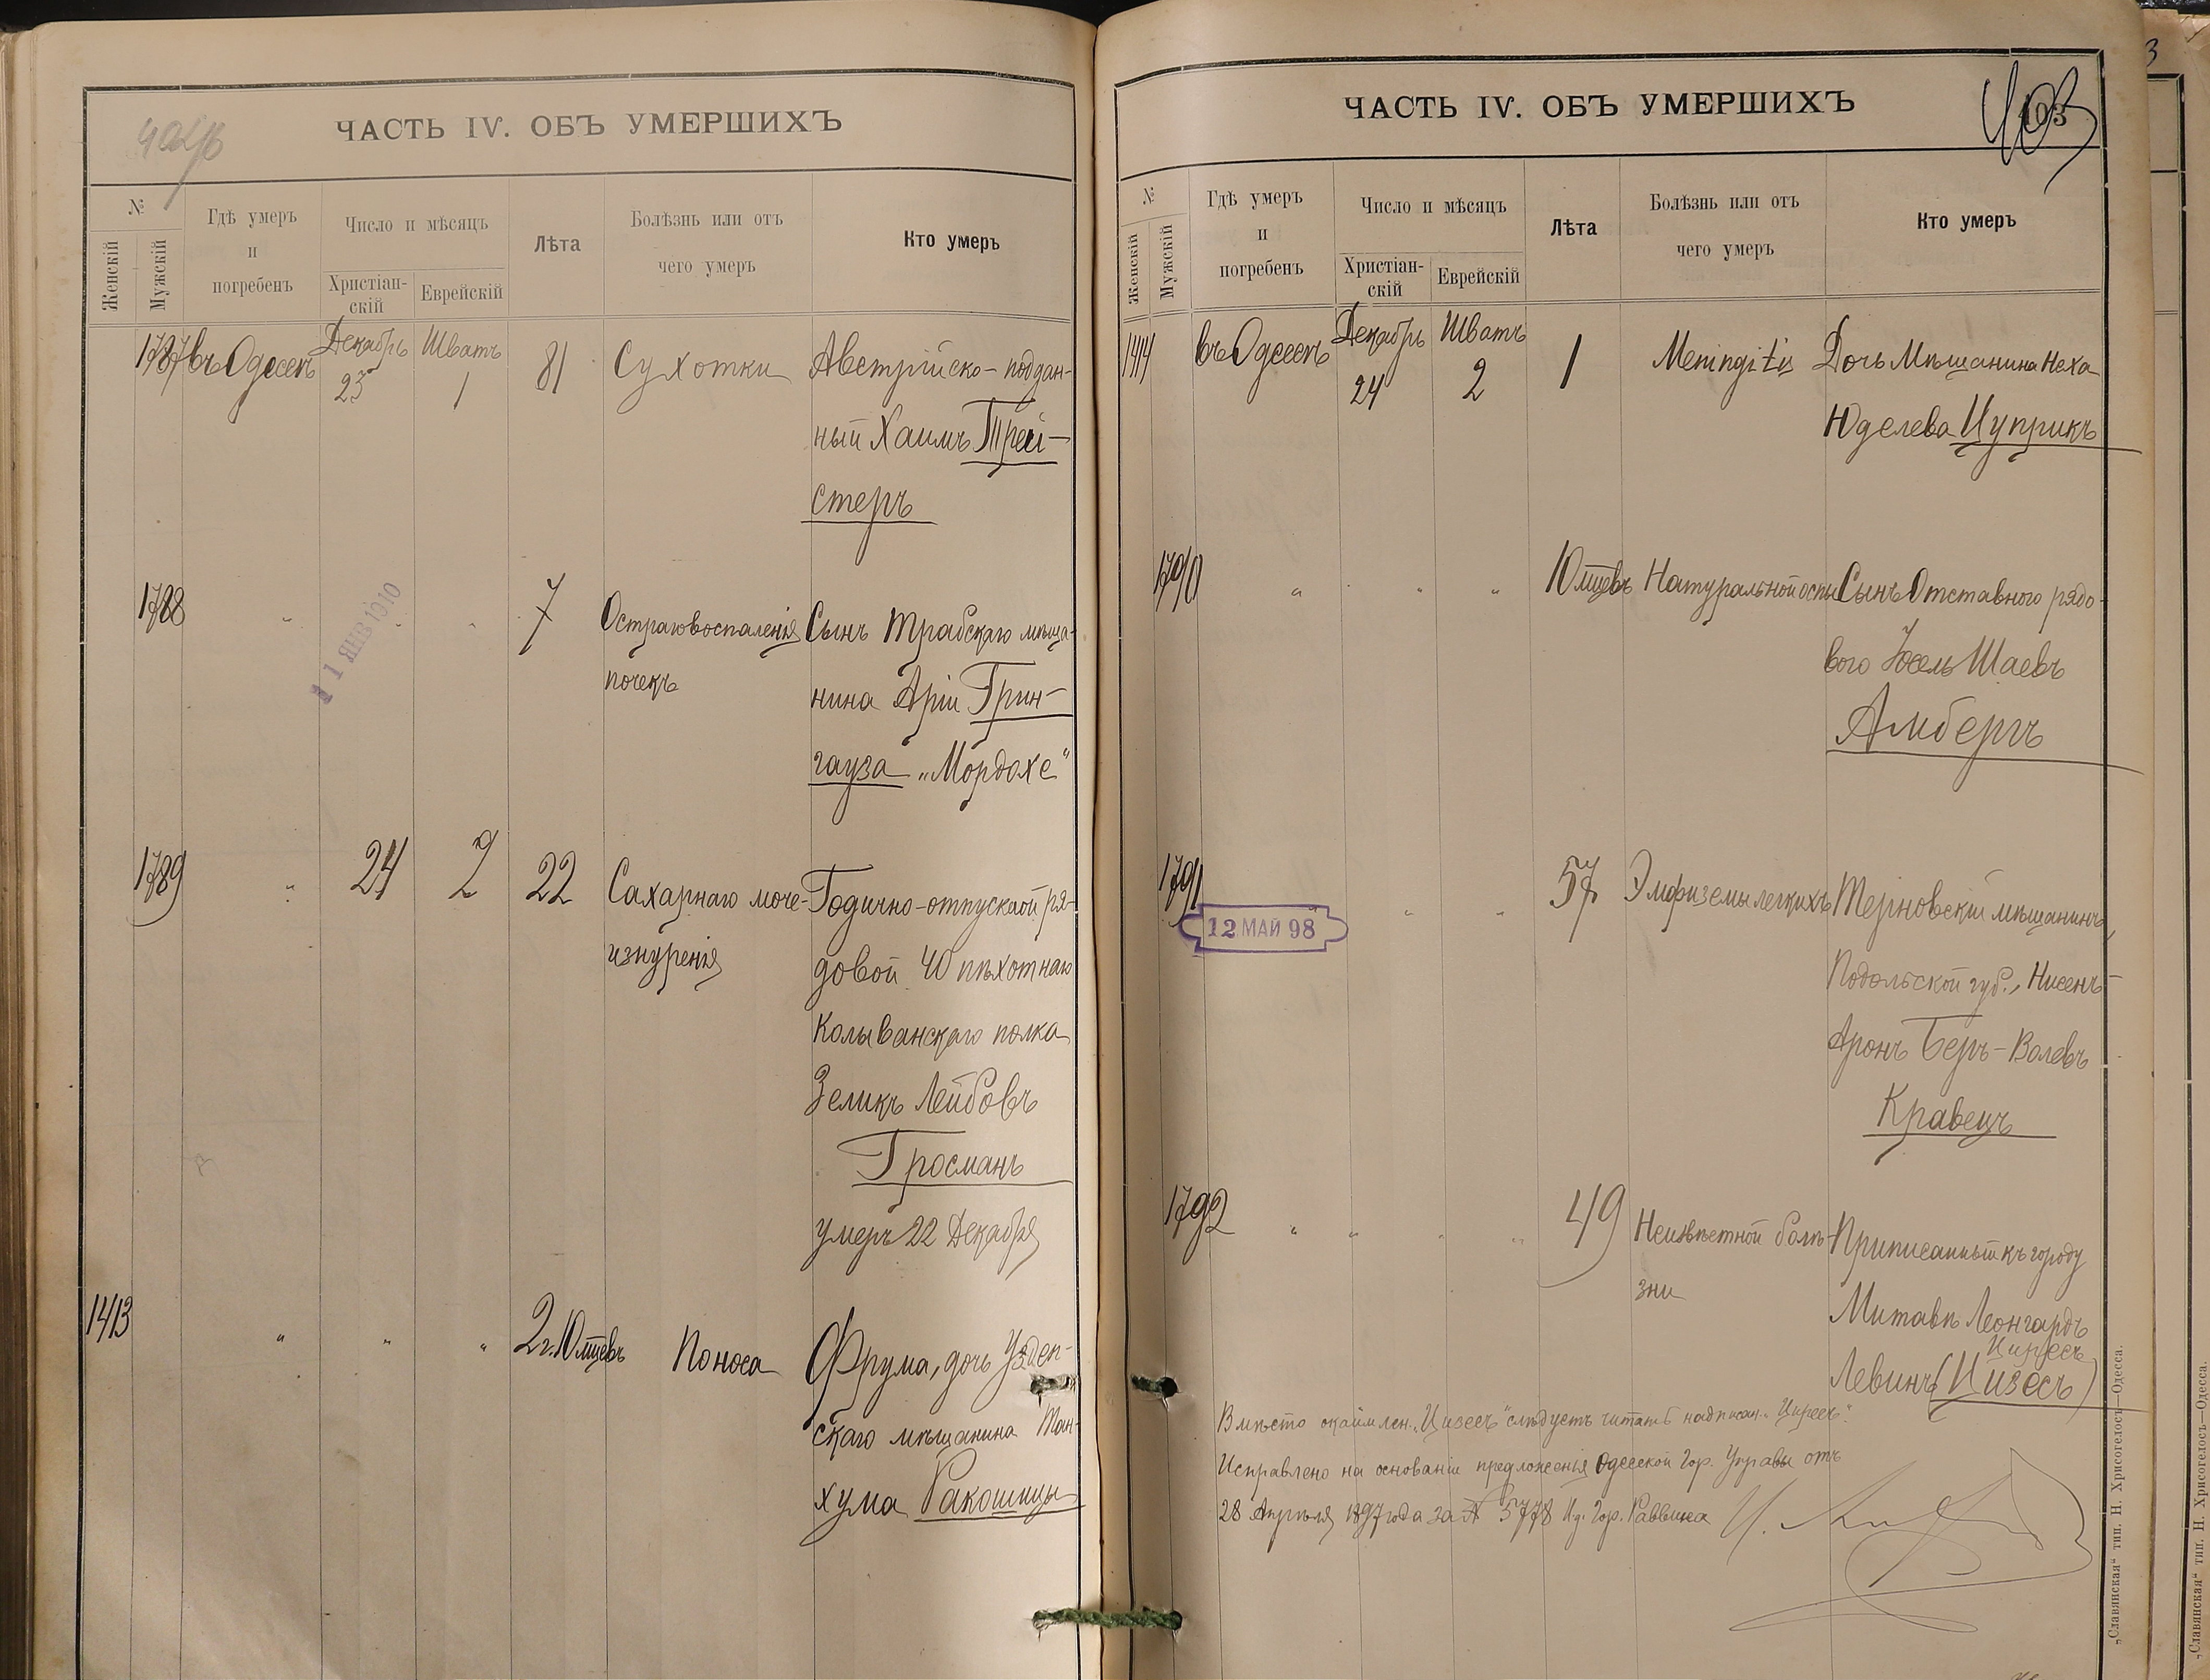 ЧАСТЬ IV. ОБЪ УМЕРШИХЪ
№
Женскій
Мужскій
Гдѣ умеръ
и
погребенъ
Число и мѣсяцъ
Христіан-
скій
Еврейскій
Лѣта
Болѣзнь или отъ
чего умеръ
Кто умеръ
1787
въ Одессѣ
Декабрь
23
Шватъ
1
81
Сухотки
Австрійско-поддан-
ный Хаимъ Трей-
стеръ
1788
"
"
"
7
Остраго воспаленія
почекъ
Сынъ Трабскаго мѣща-
нина Арій Грин-
гауза „Мордохе"
11 ЯНВ 1910
1789
"
24
2
22
Сахарнаго моче-
изнуренія
Годично-отпускной ря-
довой 40 пѣхотнаго
Колыванскаго полка
Зеликъ Лейбовъ
Гросманъ
умеръ 22 Декабря
1413
"
"
"
2 г. 10 мцевъ
Поноса
Фрума, дочь Узден-
скаго мѣщанина Тан-
хума Ракошицы
ЧАСТЬ IV. ОБЪ УМЕРШИХЪ
403
№
Женскій
Мужскій
Гдѣ умеръ
и
погребенъ
Число и мѣсяцъ
Христіан-
скій
Еврейскій
Лѣта
Болѣзнь или отъ
чего умеръ
Кто умеръ
1414
въ Одессѣ
Декабрь
24
Шватъ
2
1
Meningitis
Дочь Мѣщанина Неха
Юделева Цуприкъ
1790
"
"
"
10 мцевъ
Натуральной оспы
Сынъ Отставного рядо-
вого Іосель Шаевъ
Амбергъ
1791
12 МАЙ 98
"
"
57
Эмфиземы легкихъ
Терновскій мѣщанинъ,
Подольской губ., Нисенъ-
Аронъ Беръ-Волевъ
Кравецъ
1792
"
"
"
"
49
Неизвѣстной болѣ-
зни
Приписанный къ городу
Митавѣ Леонгардъ
Циресъ
Левинъ (Цизесъ)
Вмѣсто окаймлен. „Цизесъ" слѣдуетъ читать надписан. „Циресъ".
Исправлено на основаніи предложенія Одесской Гор. Управы отъ
28 Апрѣля 1897 года за № 5778 И.д. Гор. Раввина
„Славянская" тип. Н. Хрисогелосъ—Одесса.
„Славянская" тип. Н. Хрисогелосъ—Одесса.